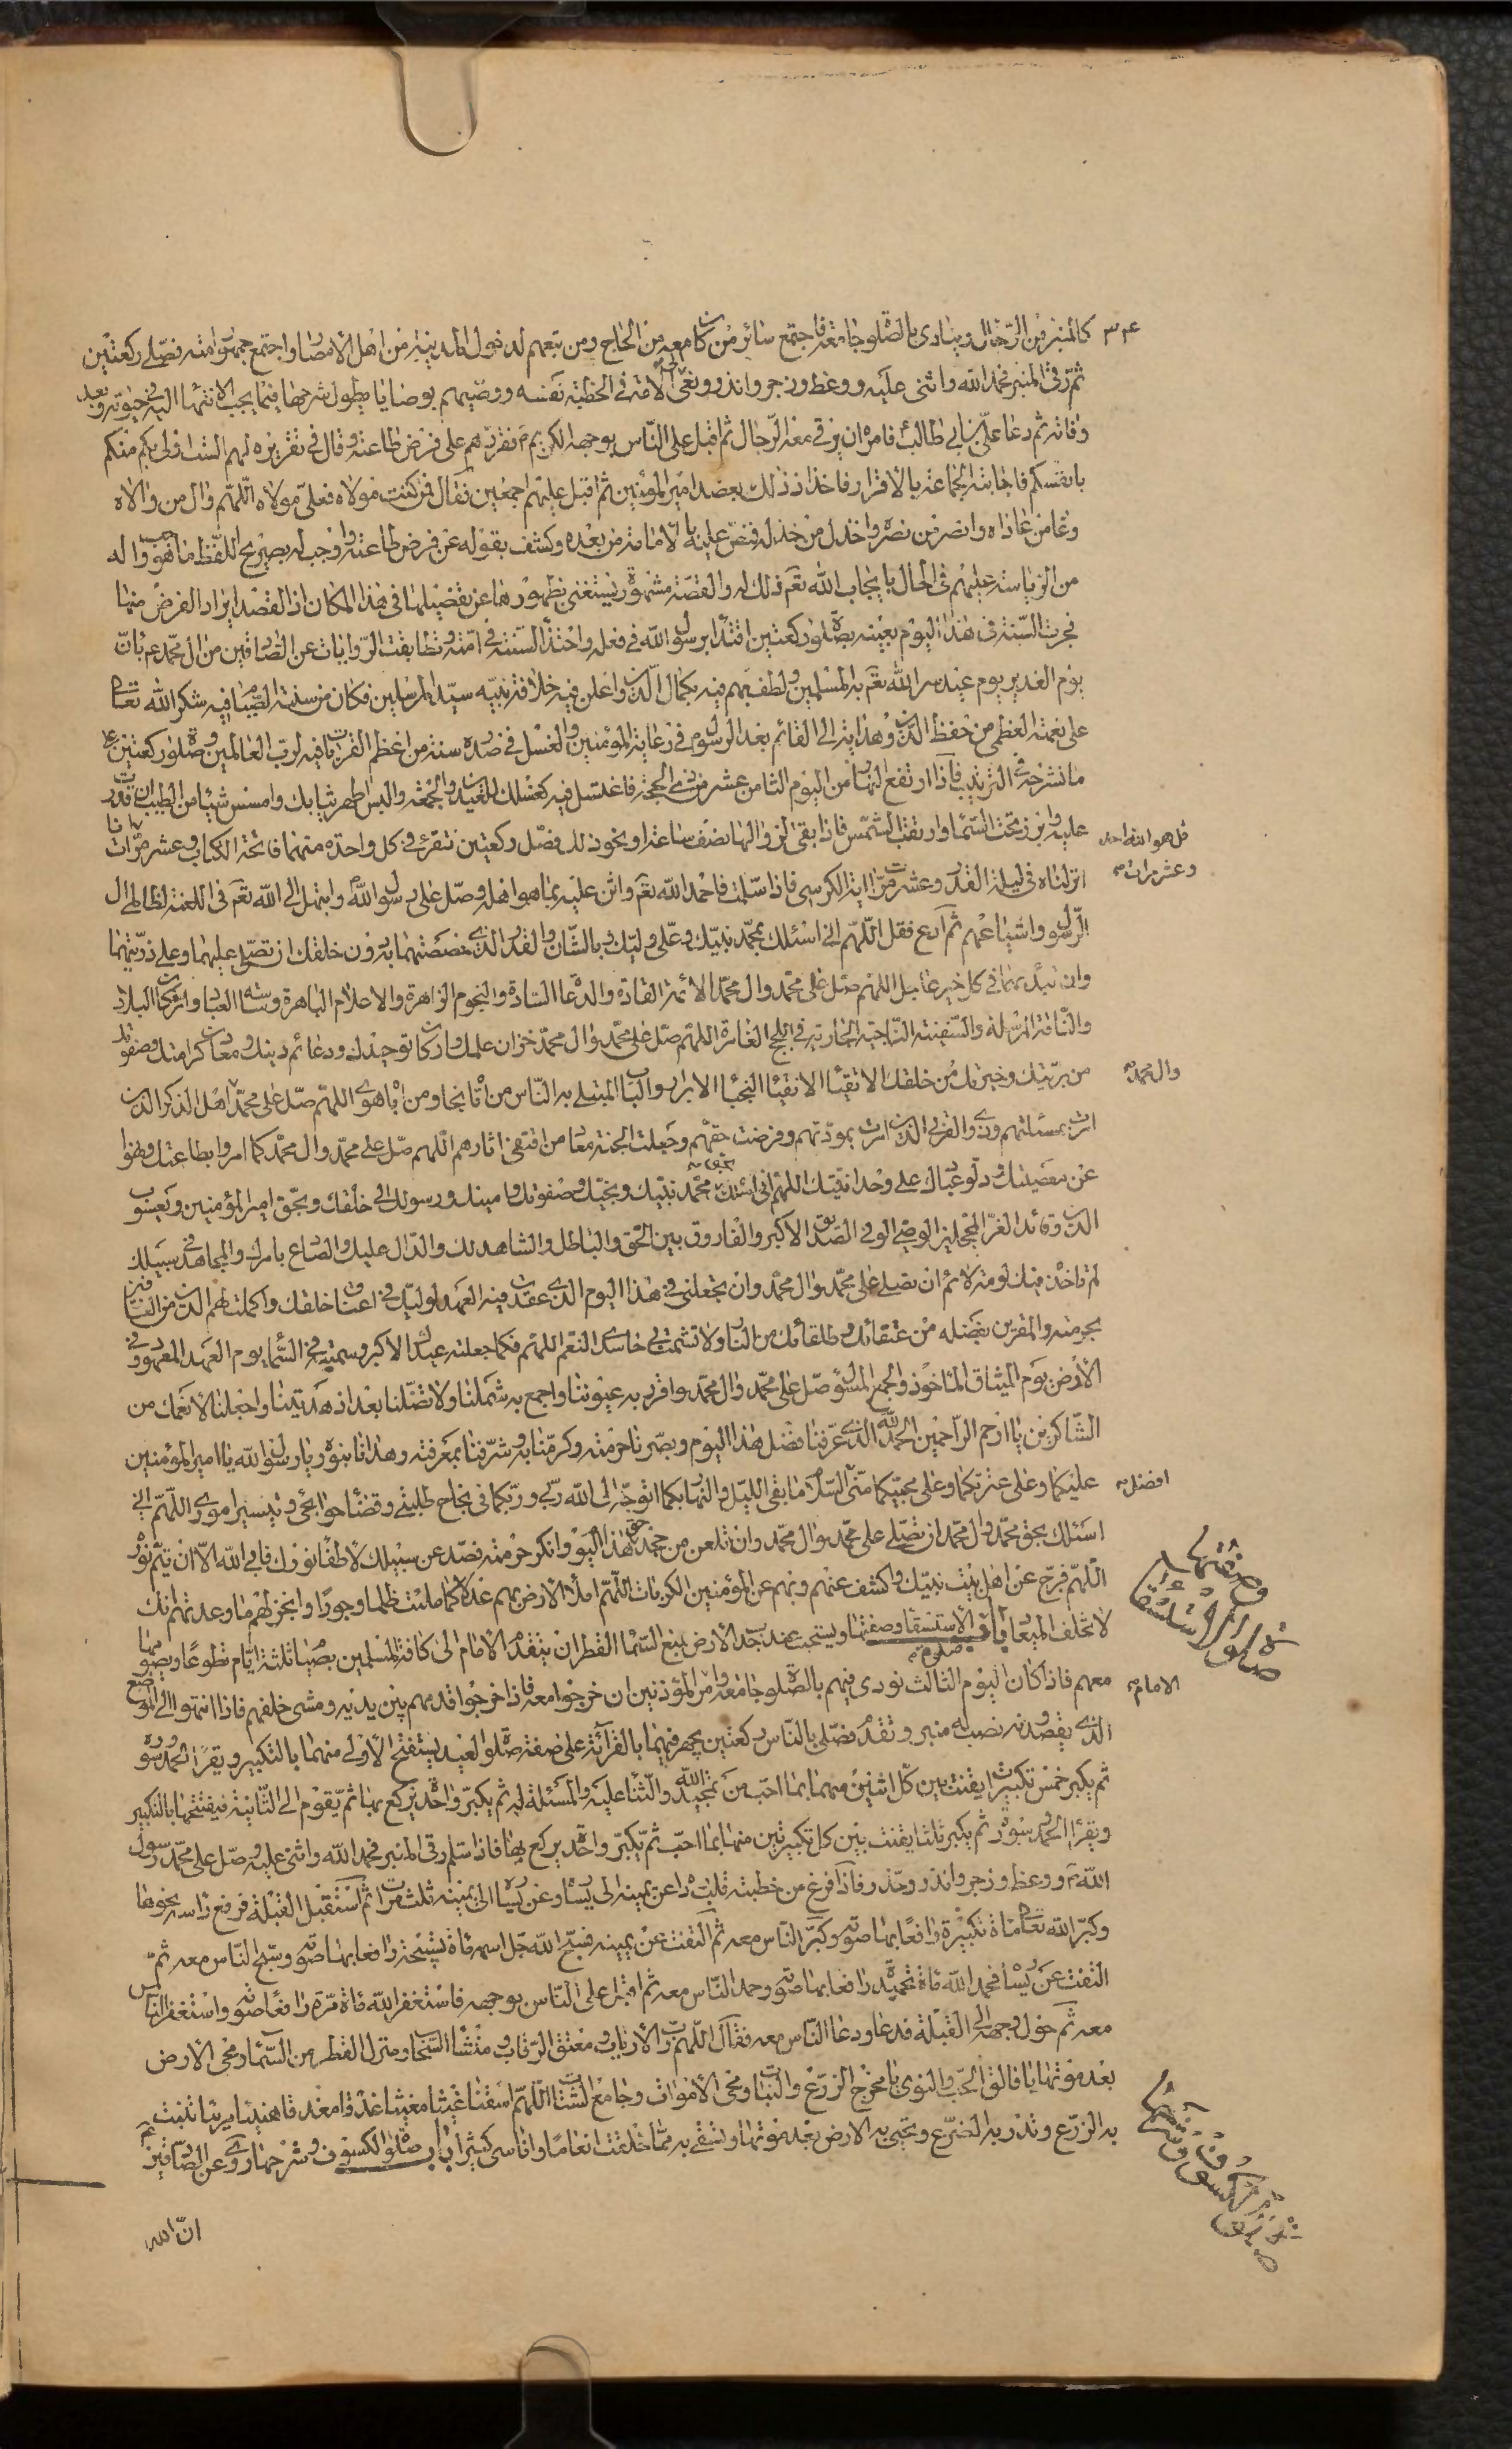 ٣٤
كالمنبر من الرّحال وينادى بالصّلوة جامعة فاجتمع سائر من كان معه من الحاج ومن تبعهم لدخول المدينة من اهل الامصار واجتمع جمهور امته فصلّى ركعتين
ثمّ رقى المنبر فحمد الله واثنى عليه ووعظ وزجر وانذر ونعى الى الامّة فى الخطبة نفسه ووصّيهم بوصايا يطول شرحها فيما يجب الانتهاء اليه فى حيوته وبعد
وفاته ثم دعا علىّ بن ابى طالب فامره ان يرقى معه الرّحال ثم اقبل على النّاس بوجهه الكريم م فقرّرهم على فرض طاعته وقال فى تقريره لهم الست اولى بكم منكم
بانفسكم فاجابته الجماعة بالاقرار فاخذ اذ ذلك بعضد امير المؤمنين ثم اقبل عليهم اجمعين فقال فمن كنت مولاه فعلىّ مولاه اللّهم وال من والاه
وعاد من عاداه وانصر من نصره واخذل من خذله فنصّ عليه بالامامة من بعده وكشف بقوله عن فرض طاعته واوجب له بصريح اللفظ ما هو واجب له
من الرياسة عليهم فى الحال بايجاب الله تعم ذلك له والقصّة مشهورة يستغنى بظهورها عن تفصيلها فى هذا المكان اذ القصد ايراد الفرض منها
فجرت السّنة فى هذا اليوم بعينه بصلوة ركعتين اقتداء برسول الله فى فعله واحتذاء لسنّته فى امّته وتطابقت الرّوايات عن الصّادقين من ال محمّد عم بانّ
يوم الغدير يوم عيد سرّ الله تعم به المسلمين ولطف بهم فيه بكمال الدّين واعلن فيه خلافة نبيّه سيّد المرسلين فكان من سنته الصّيام فيه شكر الله تعالى
على نعمته العظمى من حفظ الدّين وهدايته الى القائم بعد الرّسول فى رعاية المؤمنين والغسل فى صدره سنة من اعظم القربات فيه لربّ العالمين وصلوة ركعتين على
ما نشرحه فى الترتيب فاذا ارتفع النّهار من اليوم الثامن عشر من ذى الحجّة فاغتسل فيه كغسلك للعيدين والجمعة والبس اطهر ثيابك وامسس شيئا من الطيب ان قدرت
عليه وابرز تحت السّماء وارتقب الشّمس فاذا بقى لزوالها نصف ساعة او نحو ذلك فصلّ ركعتين تقرء فى كل واحدة منهما فاتحة الكتاب وعشر مرّات انا
قل هو الله احد
وعشر مرات
انزلناه فى ليلة القدر وعشر مرّات اية الكرسى فاذا سلّمت فاحمد الله تعم واثن عليه بما هو اهله وصلّ على رسول الله وابتهل الى الله تعم فى اللعنة لظالمى ال
الرّسول واشياعهم ثم ادع فقل اللّهم انى اسئلك بمحمّد نبيّك وعلى وليّك وبالشّان والقدر الذى خصصتهما به دون خلقك ان تصلى عليهما وعلى ذرّيتهما
وان تبدء بهما فى كل خير عاجل اللهم صلّ على محمّد وال محمّد الائمّة القادة والدّعاة السّادة والنجوم الزاهرة والاعلام الباهرة وساسة العباد واركان البلاد
والنّاقة المرسلة والسّفينة النّاجية الجارية فى اللجج الغامرة اللهم صلّ على محمّد وال محمّد خزّان علمك واركان توحيدك ودعائم دينك ومعادن كرامتك وصفوتك
والمحمّد
من بريّتك وخيرتك من خلقك الاتقياء الانقياء النجباء الابرار والباب المبتلى به النّاس من اتاه نجا ومن اباه هوى اللهمّ صلّ على محمّد اهل الذكر الذين
امرت بمسئلتهم وذوى القربى الذين امرت بمودّتهم وفرضت حقّهم وجعلت الجنة معاد من اقتفى اثارهم اللهم صلّ على محمّد وال محمّد كما امروا بطاعتك ونهوا
عن معصيتك ودلّوا عبادك على وحدانيّتك اللهمّ انى اسئلك بحق محمّد نبيّك ونجيّك وصفوتك وامينك ورسولك الى خلقك وبحقّ امير المؤمنين ويعسوب
الدّين وقائد الغرّ المحجّلين الوصى الوفى الصدّيق الاكبر والفاروق بين الحق والباطل والشاهد لك والدّال عليك والصّادع بامرك والمجاهد فى سبيلك
لم تاخذه فيك لومة لائم ان تصلى على محمّد وال محمّد وان تجعلنى فى هذا اليوم الذى عقدت فيه العهد لوليّك فى اعناق خلقك واكملت لهم الدّين من العارفين
بحرمته والمقرّين بفضله من عتقائك وطلقائك من النار ولا تشمت بى حاسدى النّعم اللهمّ فكما جعلته عيدك الاكبر وسمّيته فى السّماء يوم العهد المعهود وفى
الارض يوم الميثاق الماخوذ والجمع المسئول صلّ على محمّد وال محمّد واقرر به عيوننا واجمع به شملنا ولا تضلّنا بعد اذ هديتنا واجعلنا لانعمك من
الشّاكرين يا ارحم الرّاحمين الحمد لله الذى عرّفنا فضل هذا اليوم وبصّرنا حرمته وكرّمنا به وشرّفنا بمعرفته وهدانا بنوره يا رسول الله يا امير المؤمنين
افضل
عليكما وعلى عترتكما وعلى محبّيكما منّى السّلام ما بقى الليل والنهار بكما اتوجّه الى الله ربى وربّكما فى نجاح طلبتى وقضاء حوائجى وتيسير امورى اللّهم انى
اسئلك بحق محمّد وال محمّد ان تصلّى على محمّد وال محمّد وان تلعن من جحد حق هذا اليوم وانكر حرمته فصدّ عن سبيلك لاطفاء نورك فابى الله الّا ان يتمّ نوره
اللّهم فرّج عن اهل بيت نبيّك واكشف عنهم وبهم عن المؤمنين الكربات اللّهمّ املأ الارض بهم عدلا كما ملئت ظلما وجورًا وانجز لهم ما وعدتهم انك
لا تخلف الميعاد باب صلوة الاستسقاء وصفتها ويستحب عند جدب الارض لمنع السّماء القطر ان يتقدّم الامام الى كافة المسلمين بصيام ثلثة ايّام تطوعًا ويصومها
صلوة الاستسقاء وصفتها
الامام
معهم فاذا كان اليوم الثالث نودى فيهم بالصّلوة جامعة وامر المؤذنين ان خرجوا معه فاذا خرجوا قدمهم بين يديه ومشى خلفهم فاذا انتهوا الى الموضع
الذى يقصدونه نصب له منبر وتقدّم فصلّى بالنّاس ركعتين يجهر فيهما بالقرآئة على صفة صلوة العيد يستفتح الاولى منهما بالتكبير ويقرأ الحمد وسورة
ثم يكبر خمس تكبيرات يقنت بين كلّ اثنين منهما بما احبّ من تمجيد الله والثناء عليه والمسئلة له ثم يكبّر واحدة يركع بها ثم يقوم الى الثانية فيفتتحها بالتكبير
ويقرأ الحمد وسورة ثم يكبر ثلثا يقنت بين كل تكبيرتين منها بما احبّ ثم يكبّر واحدة يركع بها فاذا سلم رقى المنبر فحمد الله واثنى عليه وصلّ على محمّد رسول
الله م ووعظ وزجر وانذر وحذّر فاذا فرغ من خطبته قلب رداءه عن يمينه الى يساره وعن يساره الى يمينه ثلث مرات ثم استقبل القبلة فرفع راسه نحوها
وكبّر الله تعالى مائة تكبيرة رافعًا بها صوته وكبّر النّاس معه ثم التفت عن يمينه فسبّح الله جل اسمه مائة تسبيحة رافعا بها صوته وسبّح النّاس معه ثمّ
التفت عن يساره فحمد الله مائة تحميدة رافعا بها صوته وحمد النّاس معه ثم اقبل على النّاس بوجهه فاستغفر الله مائة مرّة رافعًا صوته واستغفر النّاس
معه ثم حوّل وجهه الى القبلة فدعا ودعا النّاس معه فقال اللّهم ربّ الارباب ومعتق الرّقاب ومنشأ السّحاب ومنزل القطر من السّماء ومحى الارض
بعد موتها يا فالق الحبّ والنوى يا مخرج الزرع والنبات ومحى الاموات وجامع الشّتات اللّهمّ اسقنا غيثا مغيثا غدقا مغدقا هنيئا مريئا تنبت
به الزّرع وتدرّ به الضّرع وتحيى به الارض بعد موتها وتسقى به ممّا خلقت انعامًا واناسى كثيرا باب صلوة الكسوف وشرحها روى عن الصّادقين
صلوة الكسوف وشرحها
انّ الله